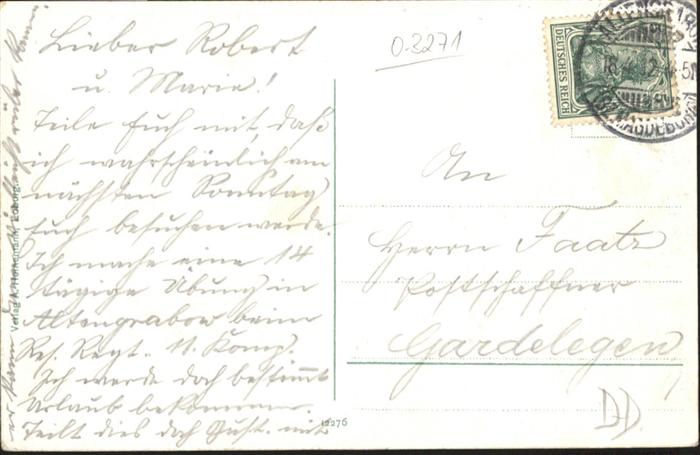 Lieber Robert
u. Marie!
Teile Euch mit, daß
ich wahrscheinlich am
nächsten Sonntag
Euch besuchen werde.
Ich mache eine 14
tägige Übung in
Altengrabow beim
Res. Regt. 11. Komp.
Ich werde doch bestimmt
Urlaub bekommen.
Teilt dies doch Gust. mit
0-3271
DEUTSCHES REICH
An
Herrn Faatz
Postschaffner
Gardelegen
12276
DD